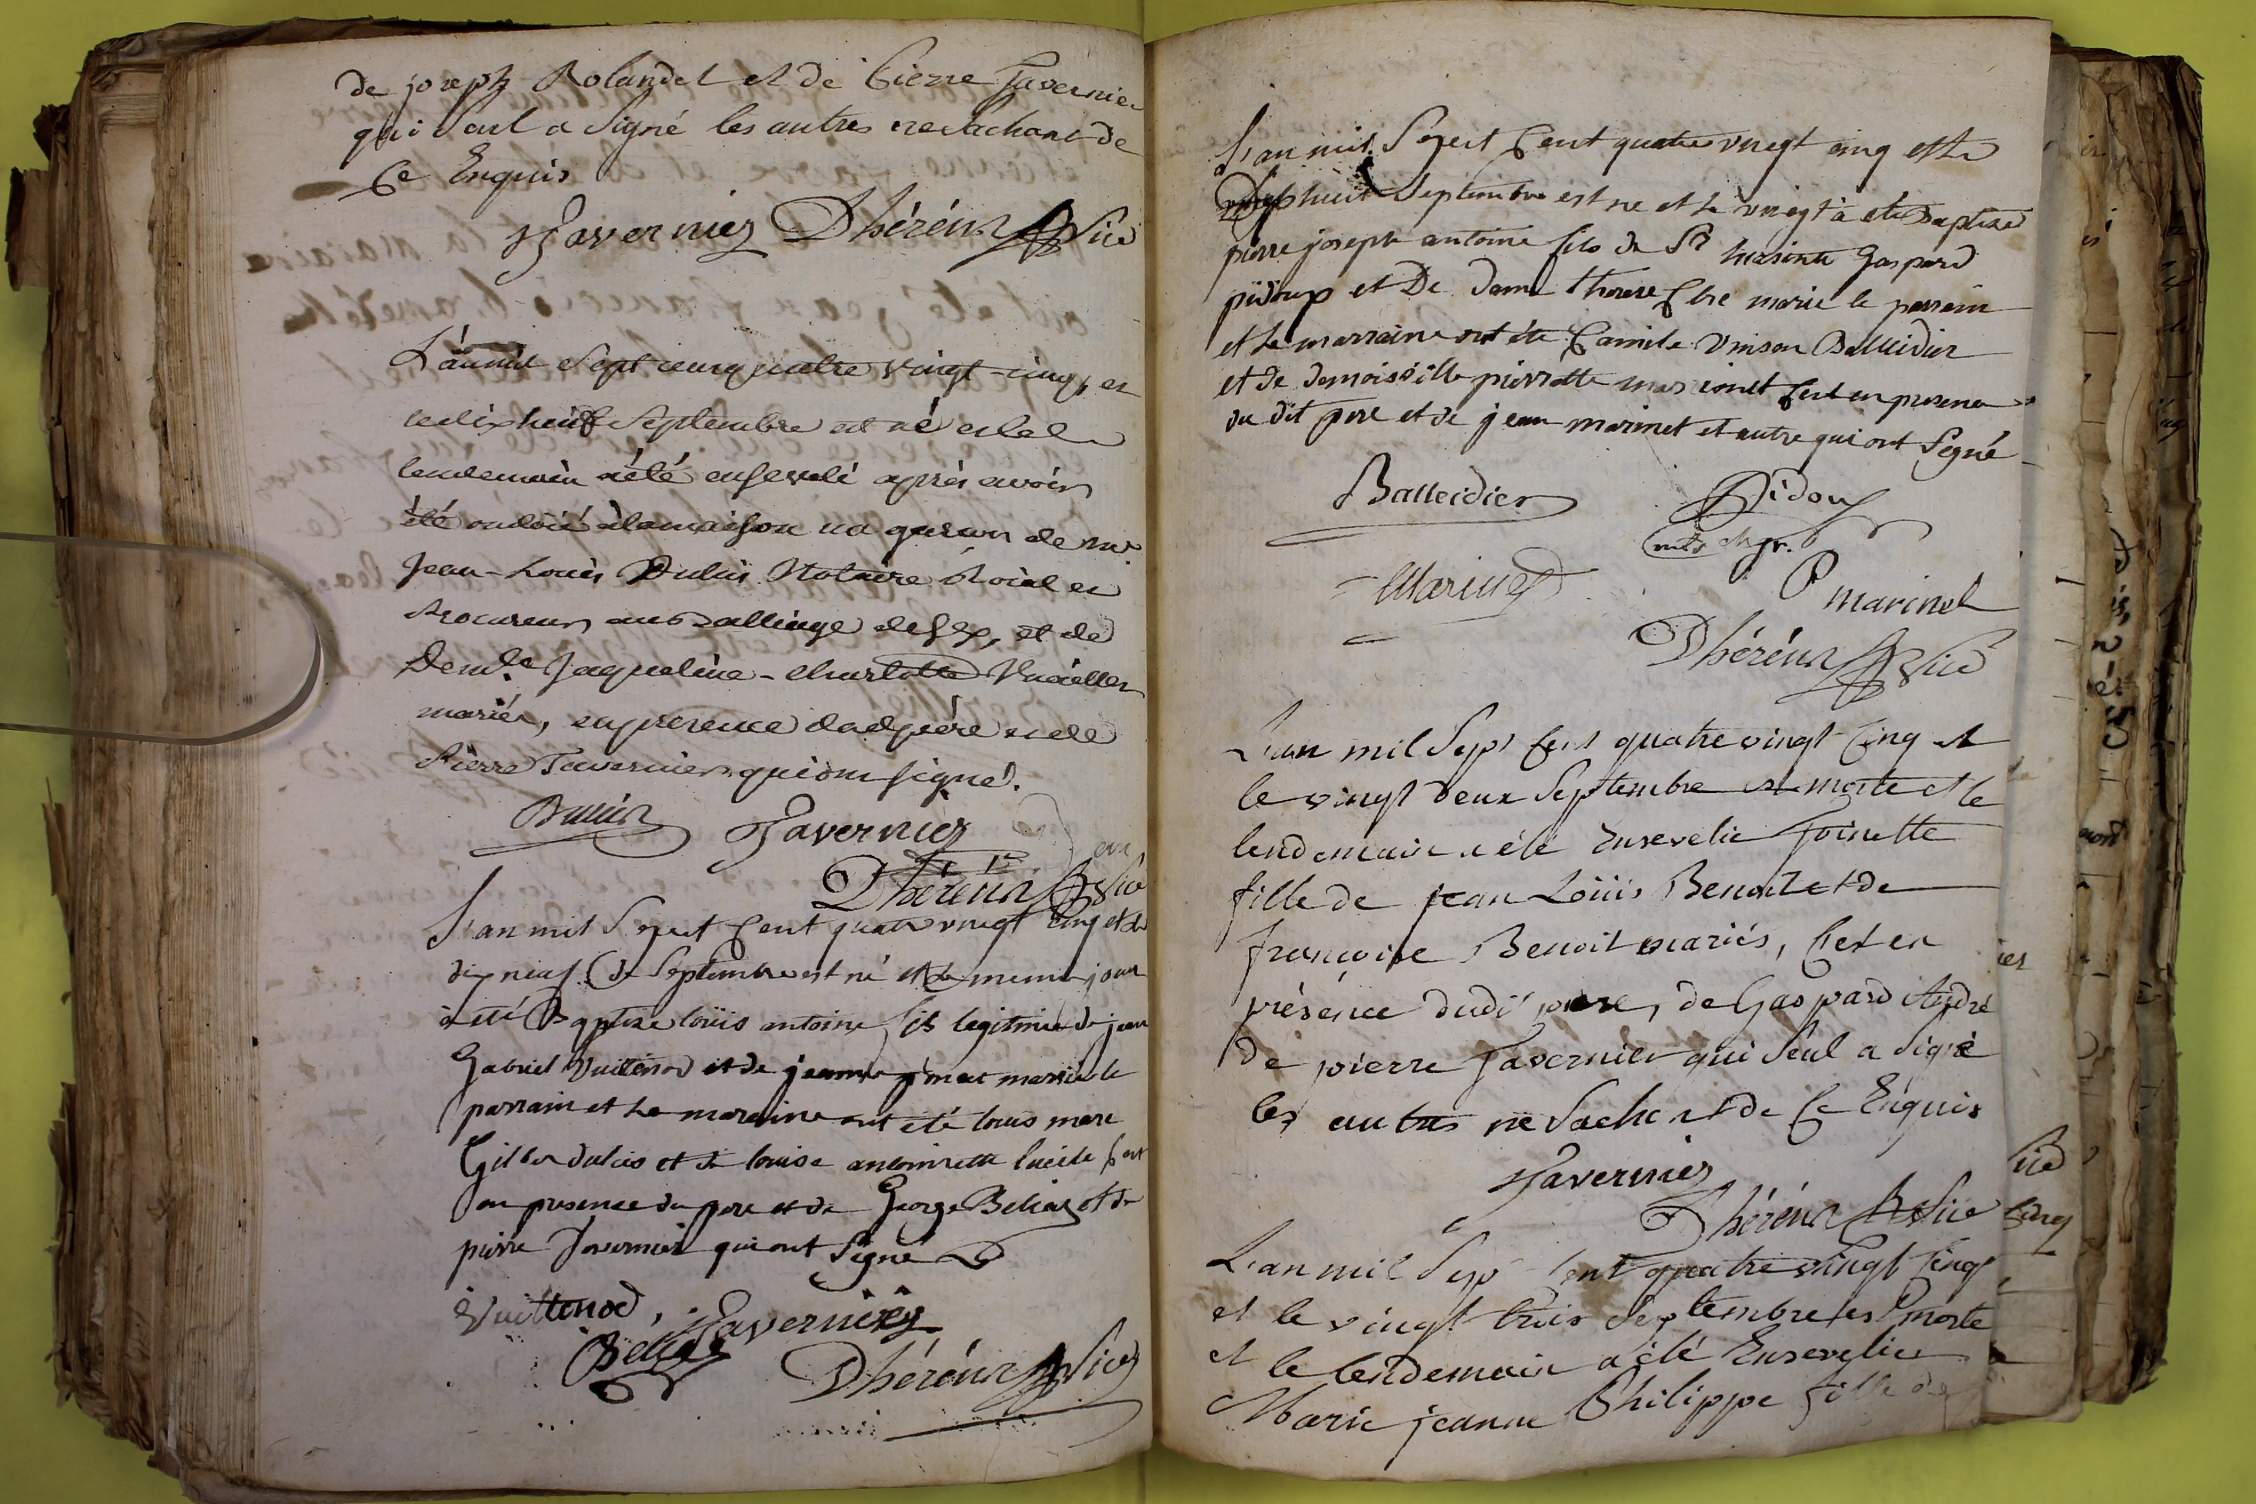 de joseph Rolandet et de Pierre Tavernier
qui Seul a Signé les autres ne Sachant de
Ce Enquis
Tavernier Dhéréns Vice
L'an mil Sept cent quatre vingt-cinq, et
le dix huit Septembre est né et le
lendemain a été ensevelé après avoir
été ondoié à la maison un garçon de me
Jean-Louis Dulcis Notaire Roial et
Procureur au Balliage de Gex, et de
Demlle Jaqueline-Charlotte
mariés, en presence dud père et de
Pierre Tavernier qui ont signé.
Dulcis Tavernier
Dhéréns Vice
L'an mil Sept Cent quatre vingt Cinq et le
dix neuf de Septembre est né et le meme jour
a été Baptize loüis antoine fils legitime de jean
Gabriel Vuittenod et de jeanne mariés le
parrain et la maraine ont été louis marc
Gilber dulcis et de louise antoinette lucile Cest
en presence du pere et de George Belias et de
pierre Tavernier qui ont Signé
Vuittenod, Tavernier
Belias Dhéréns Vice
L'an mil Sept Cent quatre vingt cinq et le
dixhuit Septembre est ne et le vingt à eté Baptizé
pierre joseph antoine fils de Sr hiasinte Gaspard
pidoux et De dame therese marie le parrain
et la marraine ont éte Camile Vinson Balleidier
et de demoiselle pierrotte marionet Cest en presence
du dit pere et de jean marinet et autre qui ont Signé
Balleidier Pidoux
mtre chgr.
Marinet P marinet
Dhéréns Vice
L'an mil Sept Cent quatre vingt Cinq et
le vingt deux Septembre est morte et le
lendemain a été Ensevelie Toinette
fille de Jean Loüis Benoit et de
françoise Benoit mariés, Cet en
présence dudi pere, de Gaspard André
de pierre Tavernier qui Seul a Signé
les autres ne Sachant de Ce Enquis
Tavernier
Dhéréns Vice
L'an mil Sept Cent quatre vingt Cinq
et le vingt trois Septembre est morte
et le lendemain a été Ensevelie
Marie jeanne Philippe fille de